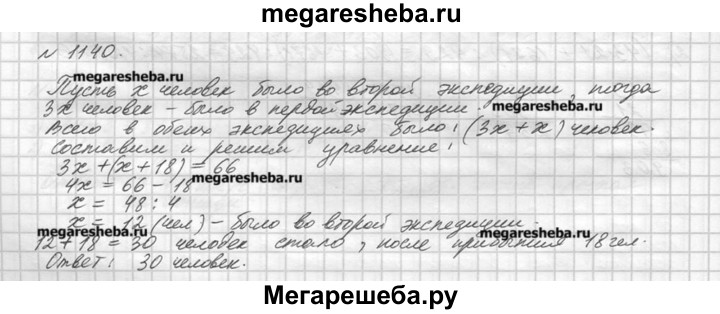 megaresheba.ru
№ 1140.
megaresheba.ru
Пусть x человек было во второй экспедиции, тогда
3x человек – было в первой экспедиции.
megaresheba.ru
Всего в обеих экспедициях было: (3x + x) человек.
Составим и решим уравнение:
3x + (x + 18) = 66
4x = 66 - 18
megaresheba.ru
x = 48 : 4
x = 12 (чел) – было во второй экспедиции.
megaresheba.ru
megaresheba.ru
12 + 18 = 30 человек стало, после прибытия 18 чел.
Ответ: 30 человек.
Мегарешеба.ру